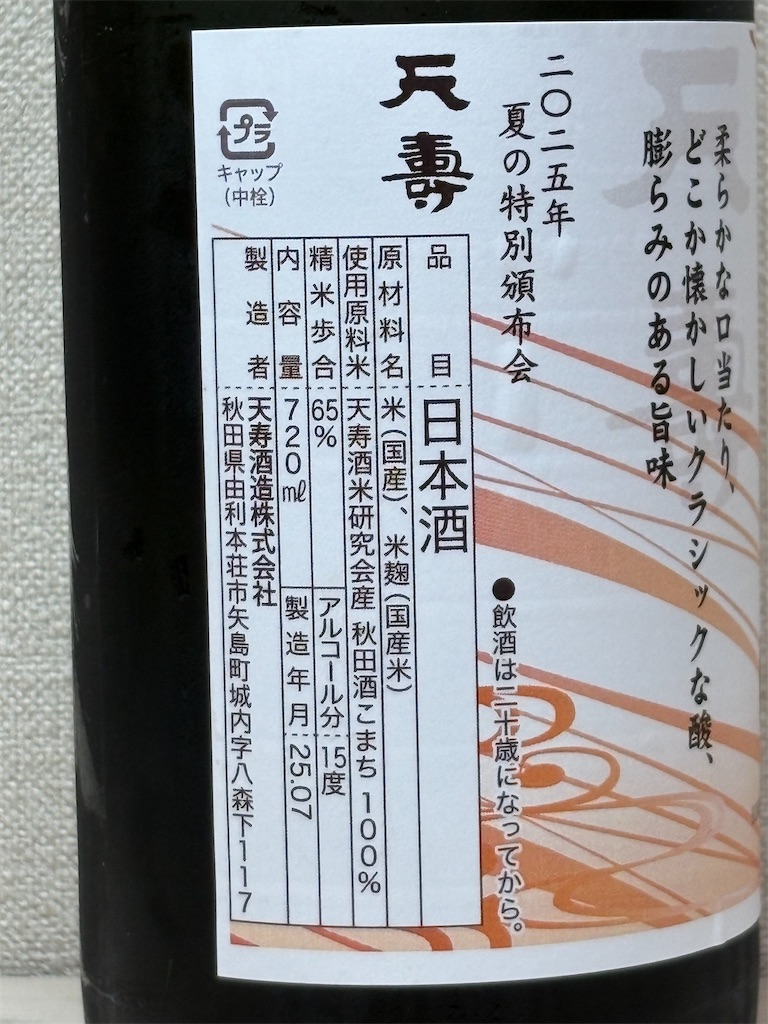 柔らかな口当たり、
どこか懐かしいクラシックな酸、
膨らみのある旨味
二〇二五年
夏の特別頒布会
天壽
●飲酒は二十歳になってから。
品目 日本酒
原材料名 米(国産)、米麹(国産米)
使用原料米 天寿酒米研究会産 秋田酒こまち 100%
精米歩合 65% アルコール分 15度
内容量 720㎖ 製造年月 25.07
製造者 天寿酒造株式会社
秋田県由利本荘市矢島町城内字八森下117
プラ
キャップ
(中栓)